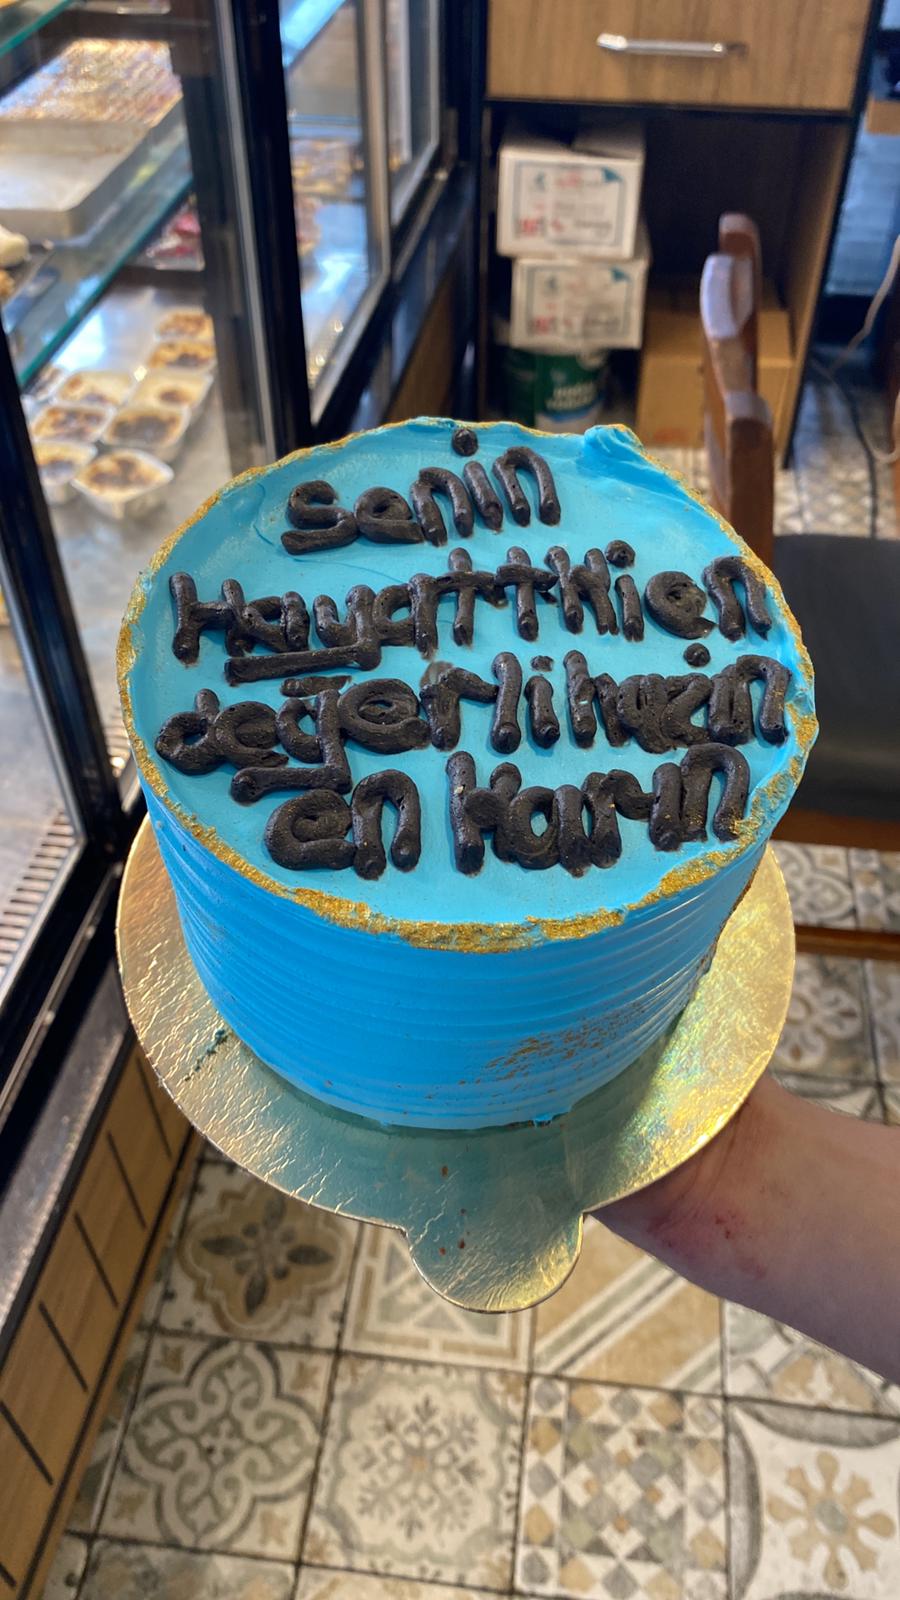 senin
Hayattkien
değerlihazin
en karın